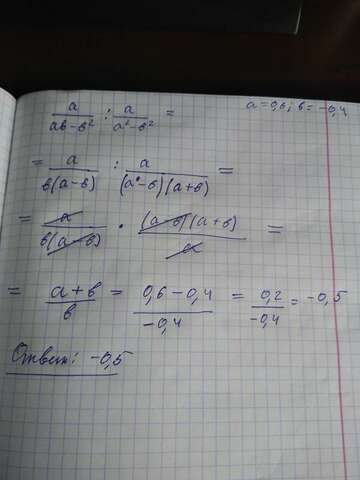 a/(ab-b²) : a/(a²-b²) =
a=0,6; b=-0,4
= a/(b(a-b)) : a/((a-b)(a+b)) =
= a/(b(a-b)) • (a-b)(a+b)/a =
= (a+b)/b = (0,6-0,4)/(-0,4) = 0,2/(-0,4) = -0,5
Ответ: -0,5